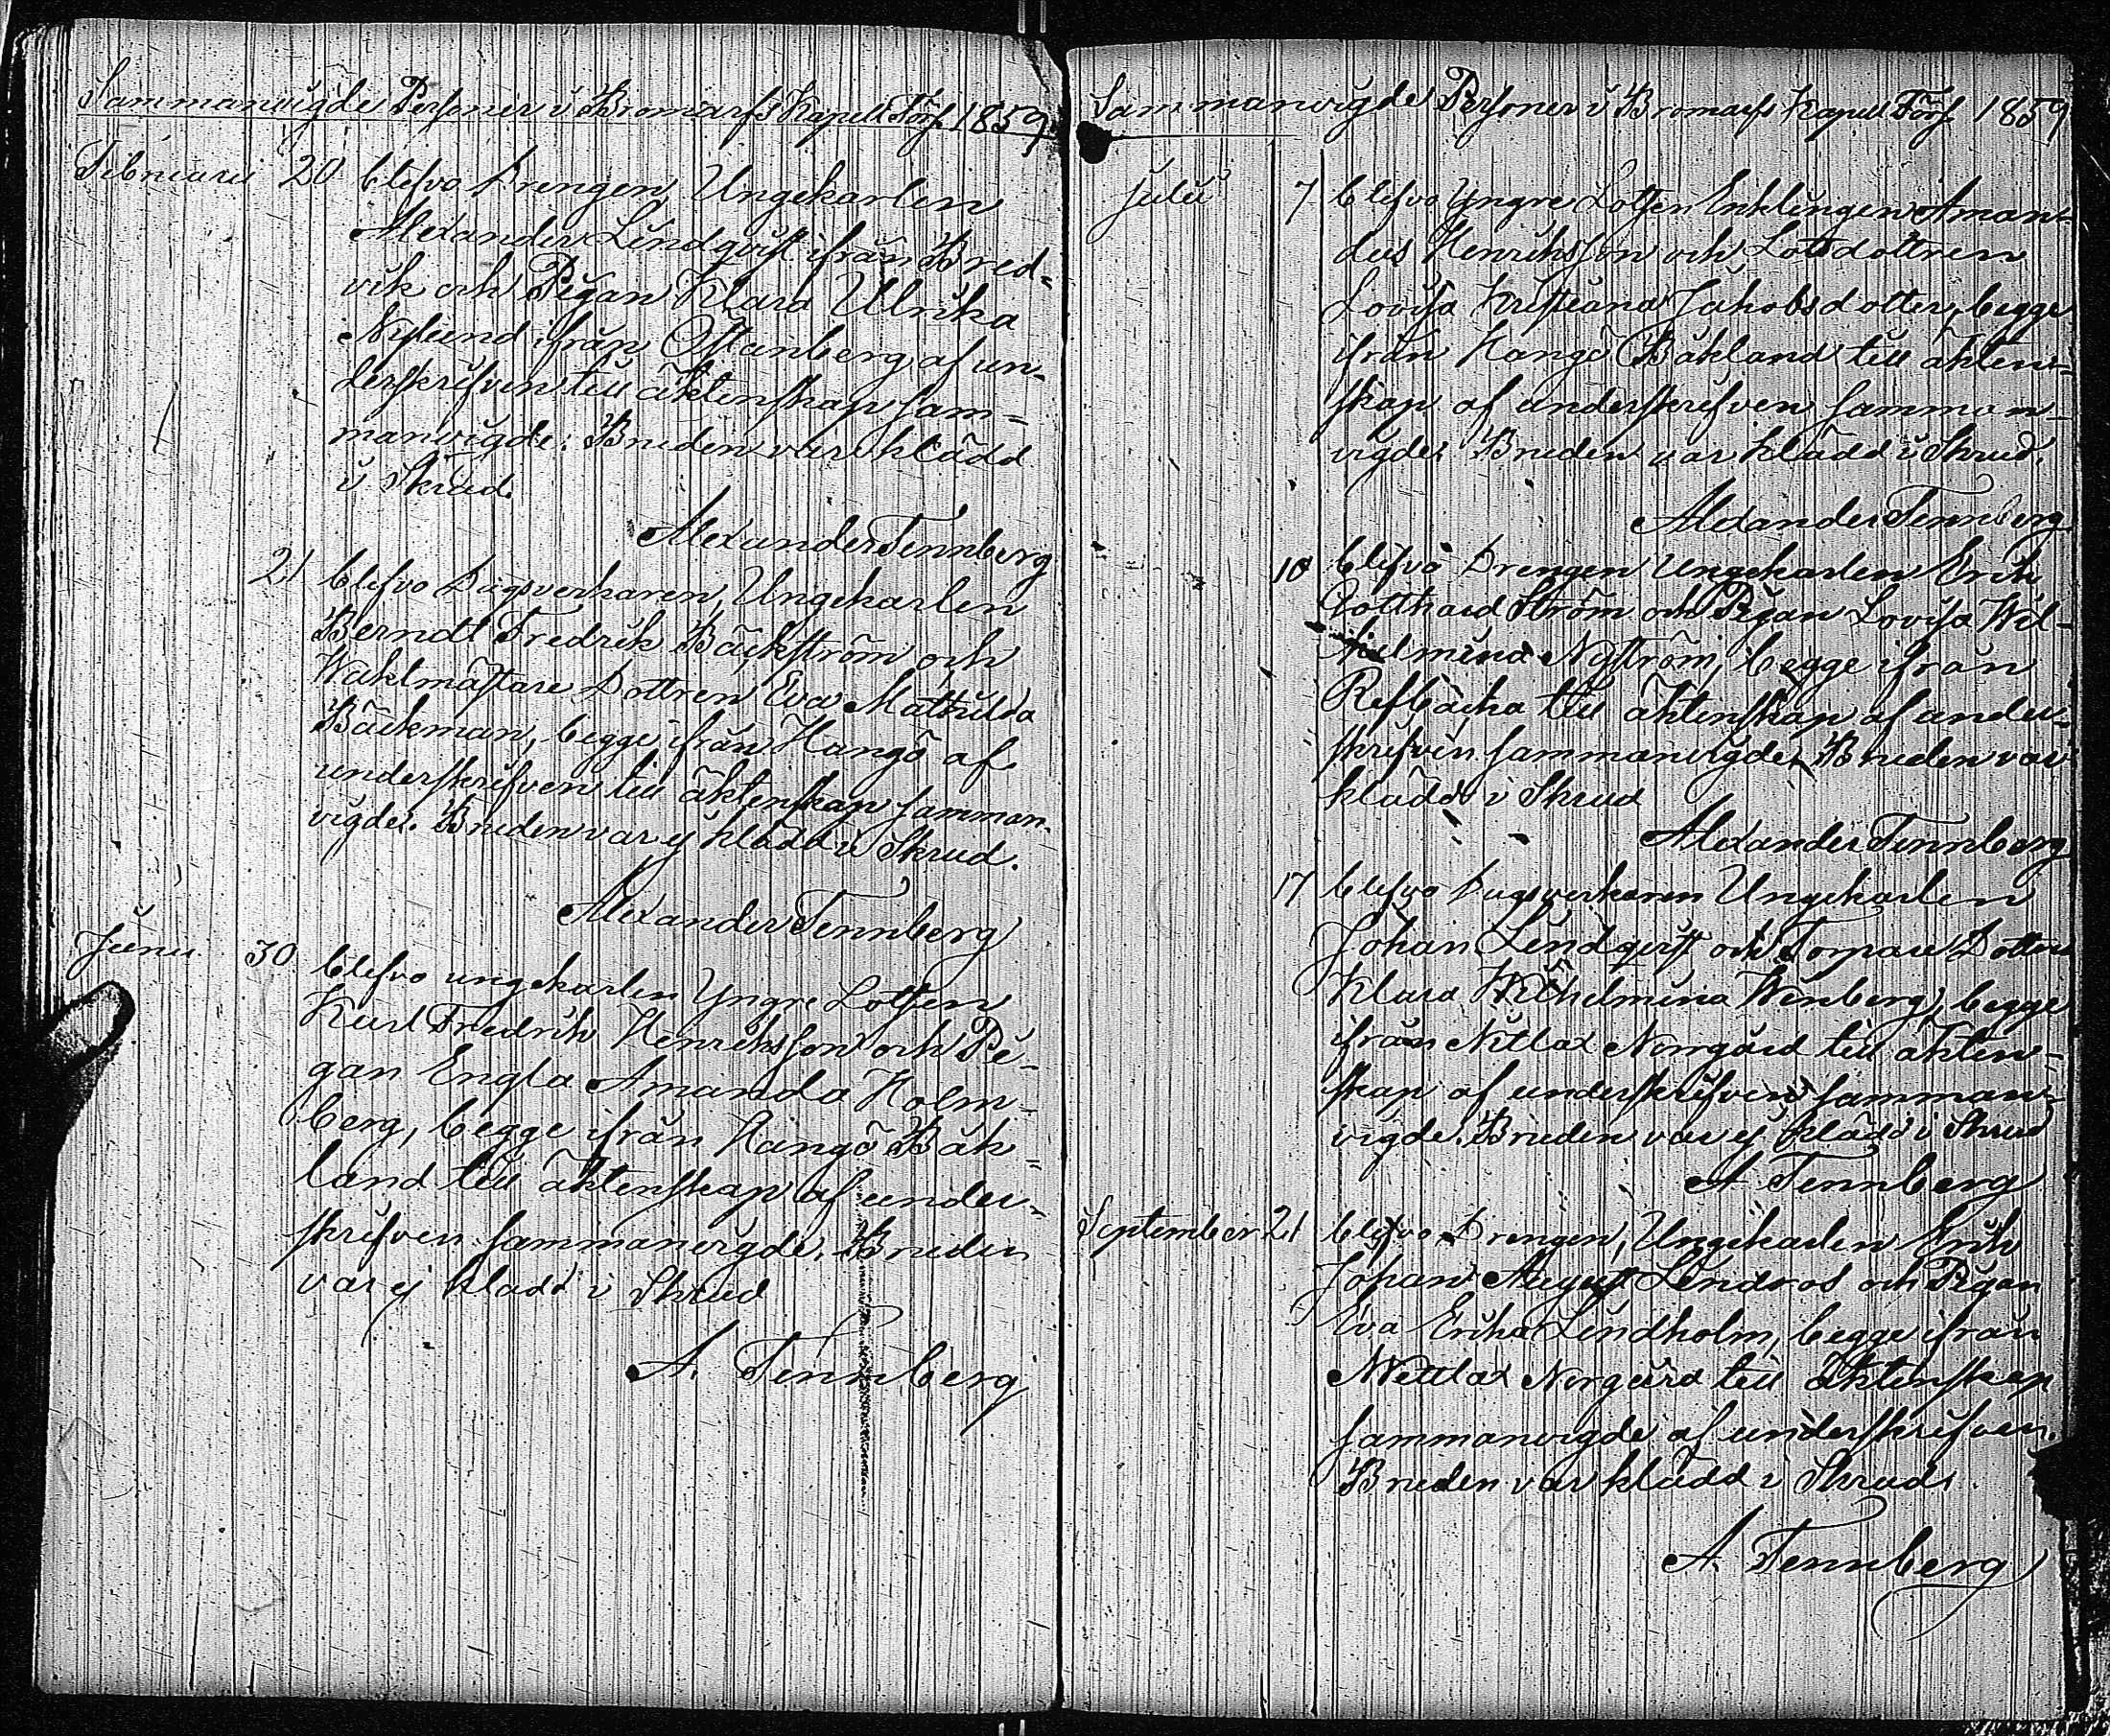 Sammanvigde Personer i Bromarfs Kapell Förs. 1859
Februarii 20 blefvo Drengen Ungekarlen
Alexander Lindqvist ifrån Bred-
vik och Pigan Klara Ulrika
Nylund ifrån Östanberg af un-
derskrifven till äktenskap sam-
manvigde. Bruden var klädd
i Skrud.
Alexander Tennberg
21 blefvo Dagsverkaren, Ungekarlen
Berndt Fredrik Bäckström och
Waktmästare Dottren Eva Mathilda
Bäckman, begge ifrån Hangö af
underskrifven till äktenskap samman-
vigde. Bruden var ej klädd i Skrud.
Alexander Tennberg
Junii 30 blefvo ungekarlen Yngre Lotsen
Karl Fredrik Henriksson och Pi-
gan Engla Amanda Holm-
berg, begge ifrån Hangö Bäk-
land till äktenskap af under-
skrifven sammanvigde. Bruden
var ej klädd i Skrud
A. Tennberg
Sammanvigde Personer i Bromarfs Kapell Förs. 1859
Julii 7 blefvo Yngre Lotsen Enklingen Aman-
dus Henriksson och Lotsdottren
Lovisa Kristiana Jakobsdotter, begge
ifrån Hangö Bäkland till äkten-
skap af underskrifven samman-
vigde. Bruden var klädd i Skrud.
Alexander Tennberg
10 blefvo Drengen Ungekarlen Erik
Gotthard Ström och Pigan Lovisa Wil-
helmina Nyström, begge ifrån
Refbacka till äktenskap af under-
skrifven sammanvigde. Bruden var
klädd i Skrud
Alexander Tennberg
17 blefvo Dagsverkaren Ungekarlen
Johan Lindqvist och Torpare Dottren
Klara Wilhelmina Winberg, begge
ifrån Nitlax Norrgård till äkten-
skap af underskrifven samman-
vigde. Bruden var ej klädd i Skrud
A Tennberg
September 21 blefvo Drengen, Ungekarlen Erik
Johan August Lindros och Pigan
Eva Erika Lindholm, begge ifrån
Nittlax Norgård till äktenskap
sammanvigde af underskrifven.
Bruden var klädd i Skrud.
A. Tennberg